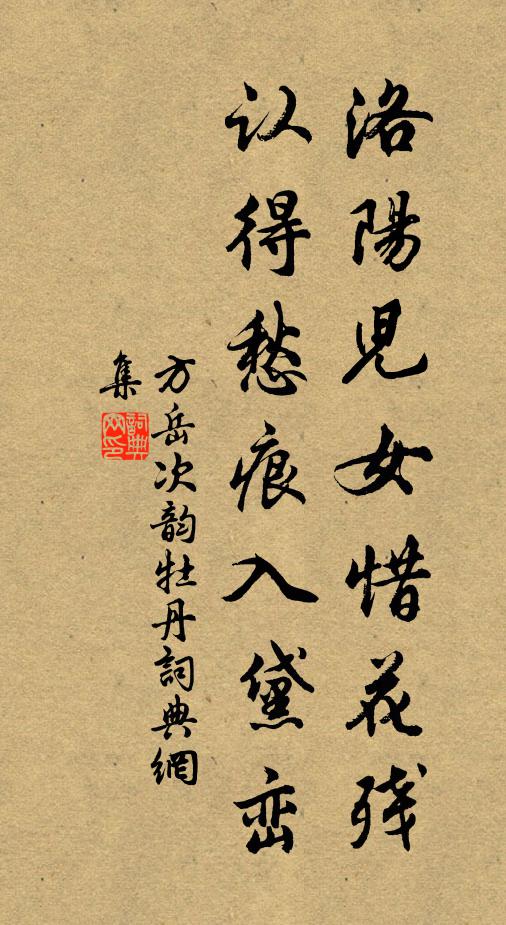 洛陽児女惜花残
认得愁痕入黛峦
方岳次韵牡丹詞典網
集
詞典网印